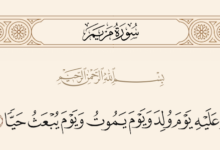 سُورَةُ مَرْيَمَ
بِسْمِ اللَّهِ الرَّحْمَٰنِ الرَّحِيمِ
عَلَيْهِ يَوْمَ وُلِدَ وَيَوْمَ يَمُوتُ وَيَوْمَ يُبْعَثُ حَيًّا